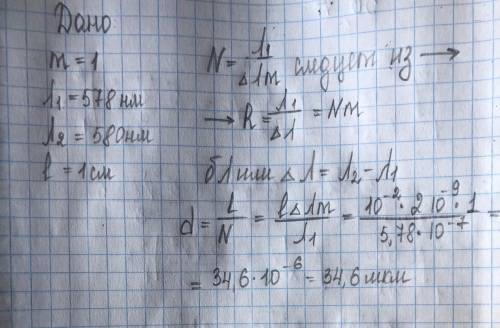 Дано
m = 1
λ1 = 578 нм
λ2 = 580 нм
l = 1 см
N = λ1 / Δλm следует из →
→ R = λ1 / Δλ = Nm
Δλ = λ2 - λ1
d = l / N = lΔλm / λ1 = 10^-2 · 2 10^-9 · 1 / 5,78 · 10^-7 =
= 34,6 · 10^-6 = 34,6 мкм